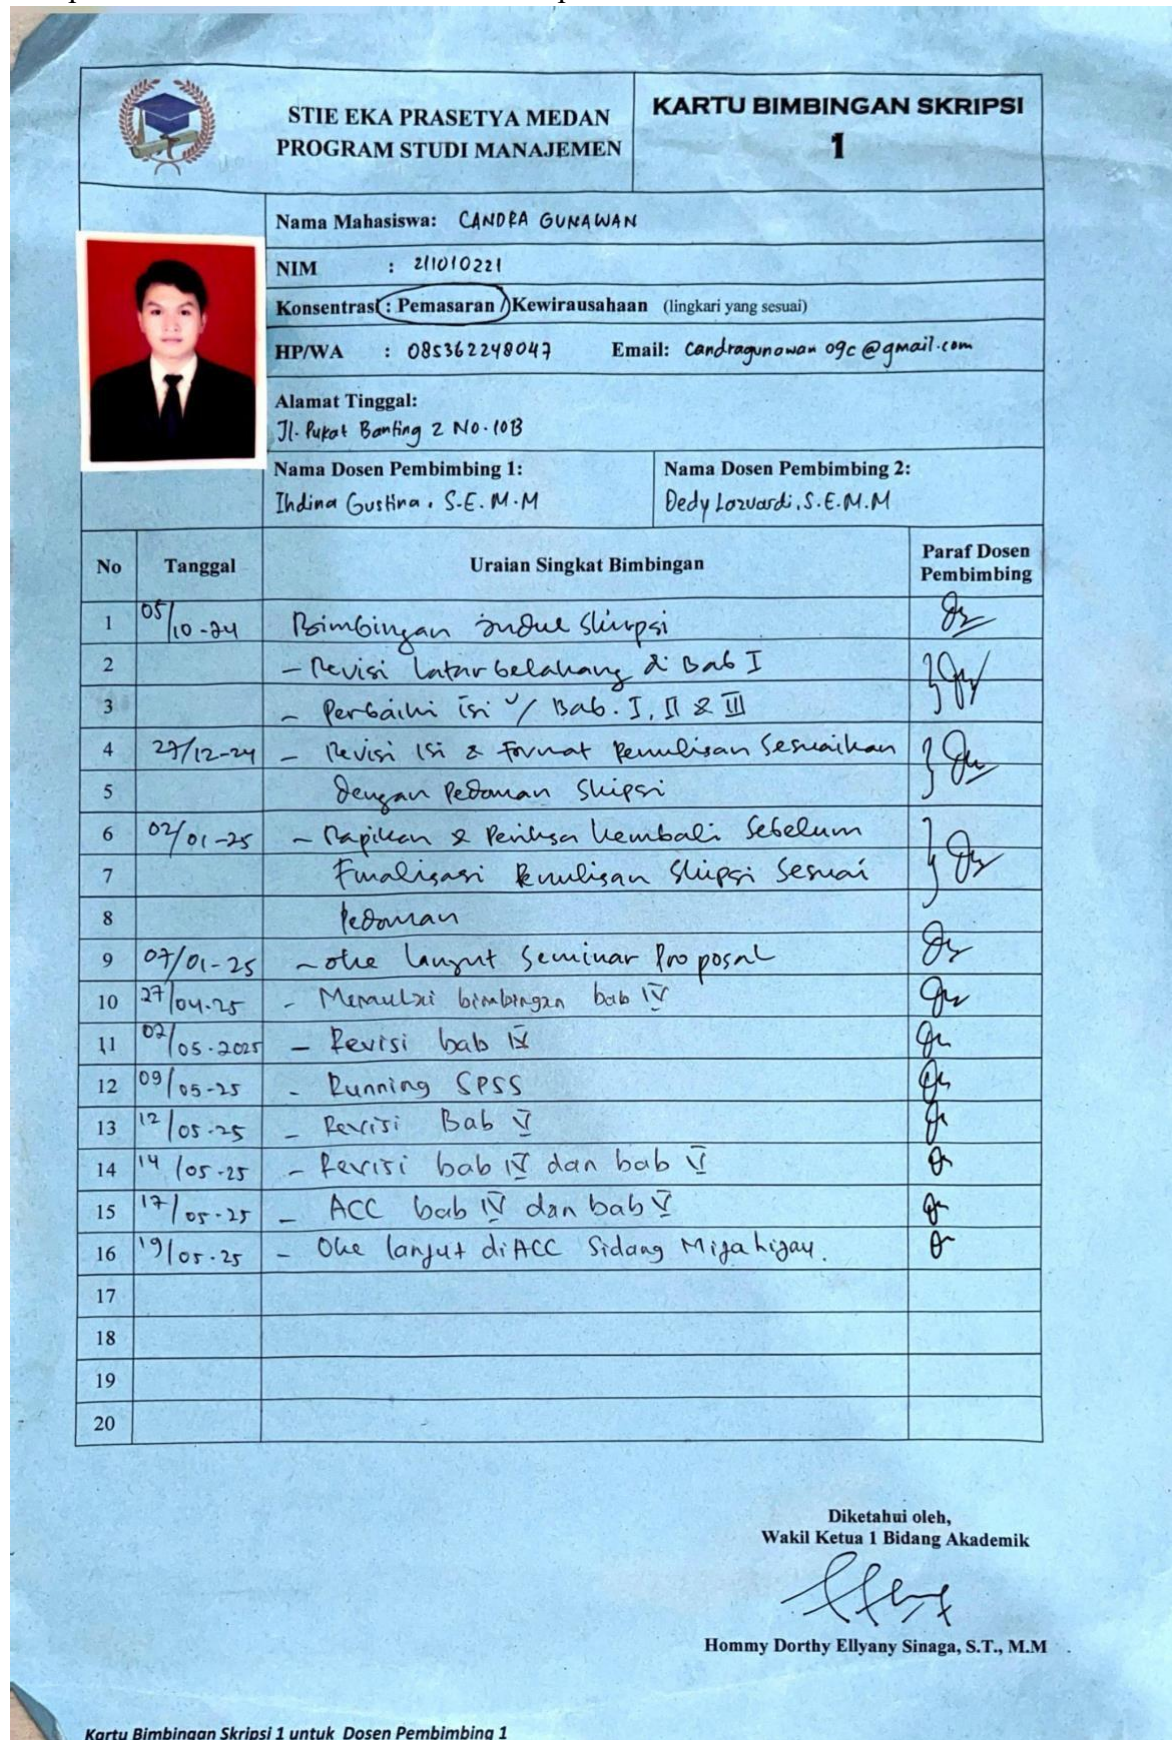 STIE EKA PRASETYA MEDAN
PROGRAM STUDI MANAJEMEN
KARTU BIMBINGAN SKRIPSI
1
Nama Mahasiswa: CANDRA GUNAWAN
NIM : 211010221
Konsentrasi : Pemasaran / Kewirausahaan (lingkari yang sesuai)
HP/WA : 085362248047 Email: candragunawan09c@gmail.com
Alamat Tinggal:
Jl. Pukat Banting 2 No. 10B
Nama Dosen Pembimbing 1:
Ihdina Gustina, S.E. M.M
Nama Dosen Pembimbing 2:
Dedy Lazuardi, S.E. M.M
No Tanggal Uraian Singkat Bimbingan Paraf Dosen Pembimbing
1 05/10-24 Bimbingan Skripsi
2 - Revisi Latar belakang di Bab I
3 - Perbaiki isi Bab. I, II & III
4 27/12-24 - Revisi isi & format Penulisan Sesuaikan
5 dengan Pedoman Skripsi
6 02/01-25 - Rapikan & Periksa kembali Sebelum
7 Finalisasi Penulisan Skripsi Sesuai
8 Pedoman
9 07/01-25 - oke lanjut Seminar Proposal
10 27/04-25 - Memulai bimbingan bab IV
11 02/05-2025 - Revisi bab IV
12 09/05-25 - Running SPSS
13 12/05-25 - Revisi Bab V
14 14/05-25 - Revisi bab IV dan bab V
15 17/05-25 - ACC bab IV dan bab V
16 19/05-25 - Oke lanjut di ACC Sidang Meja hijau.
17
18
19
20
Diketahui oleh,
Wakil Ketua 1 Bidang Akademik
Hommy Dorthy Ellyany Sinaga, S.T., M.M
Kartu Bimbingan Skripsi 1 untuk Dosen Pembimbing 1